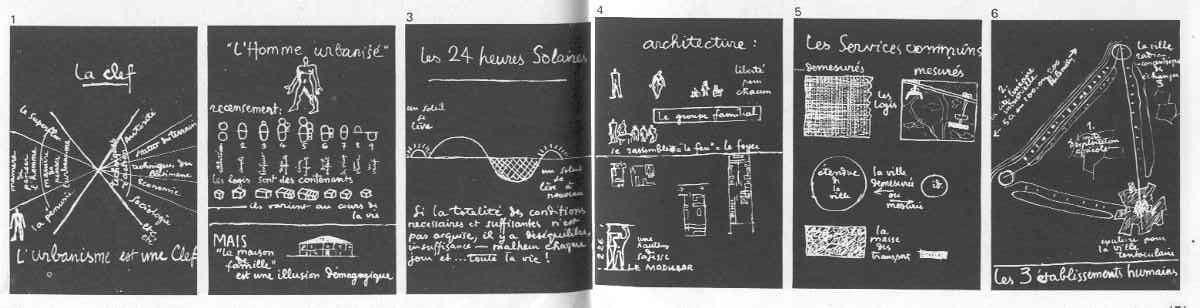 1
La clef
manière
de
penser
l'homme
la pénurie
Statut du terrain
techniques du
Bâtiment
Economie
Sociologie
L'urbanisme est une Clef
"L'Homme urbanisé"
recensement:
2 3 4 5 6 7 8 9
les logis sont des contenants
ils varient au cours de
la vie
MAIS
"la maison
de famille"
est une illusion démagogique
3
Les 24 heures Solaires
un soleil
se
lève
un soleil
se
lève à
nouveau
Si la totalité des conditions
nécessaires et suffisantes n'est
pas acquise, il y a déséquilibre,
insuffisance — malheur chaque
jour et ... toute la vie !
4
architecture :
liberté
pour
chacun
le groupe familial
se rassemble: "le feu" = le foyer
2.26
une
hauteur
LE MODULOR
5
Les Services communs
demesurés
mesurés
les
logis
étendue
de la
ville
la ville
demesurée
ou
mesurée
la
masse
des
transports
6
la ville
radio-
concentrique
des
échanges
3
2.
la cité linéaire
industrielle
1.
l'unité
d'exploitation
agricole
la ville
tentaculaire
Les 3 établissements humains